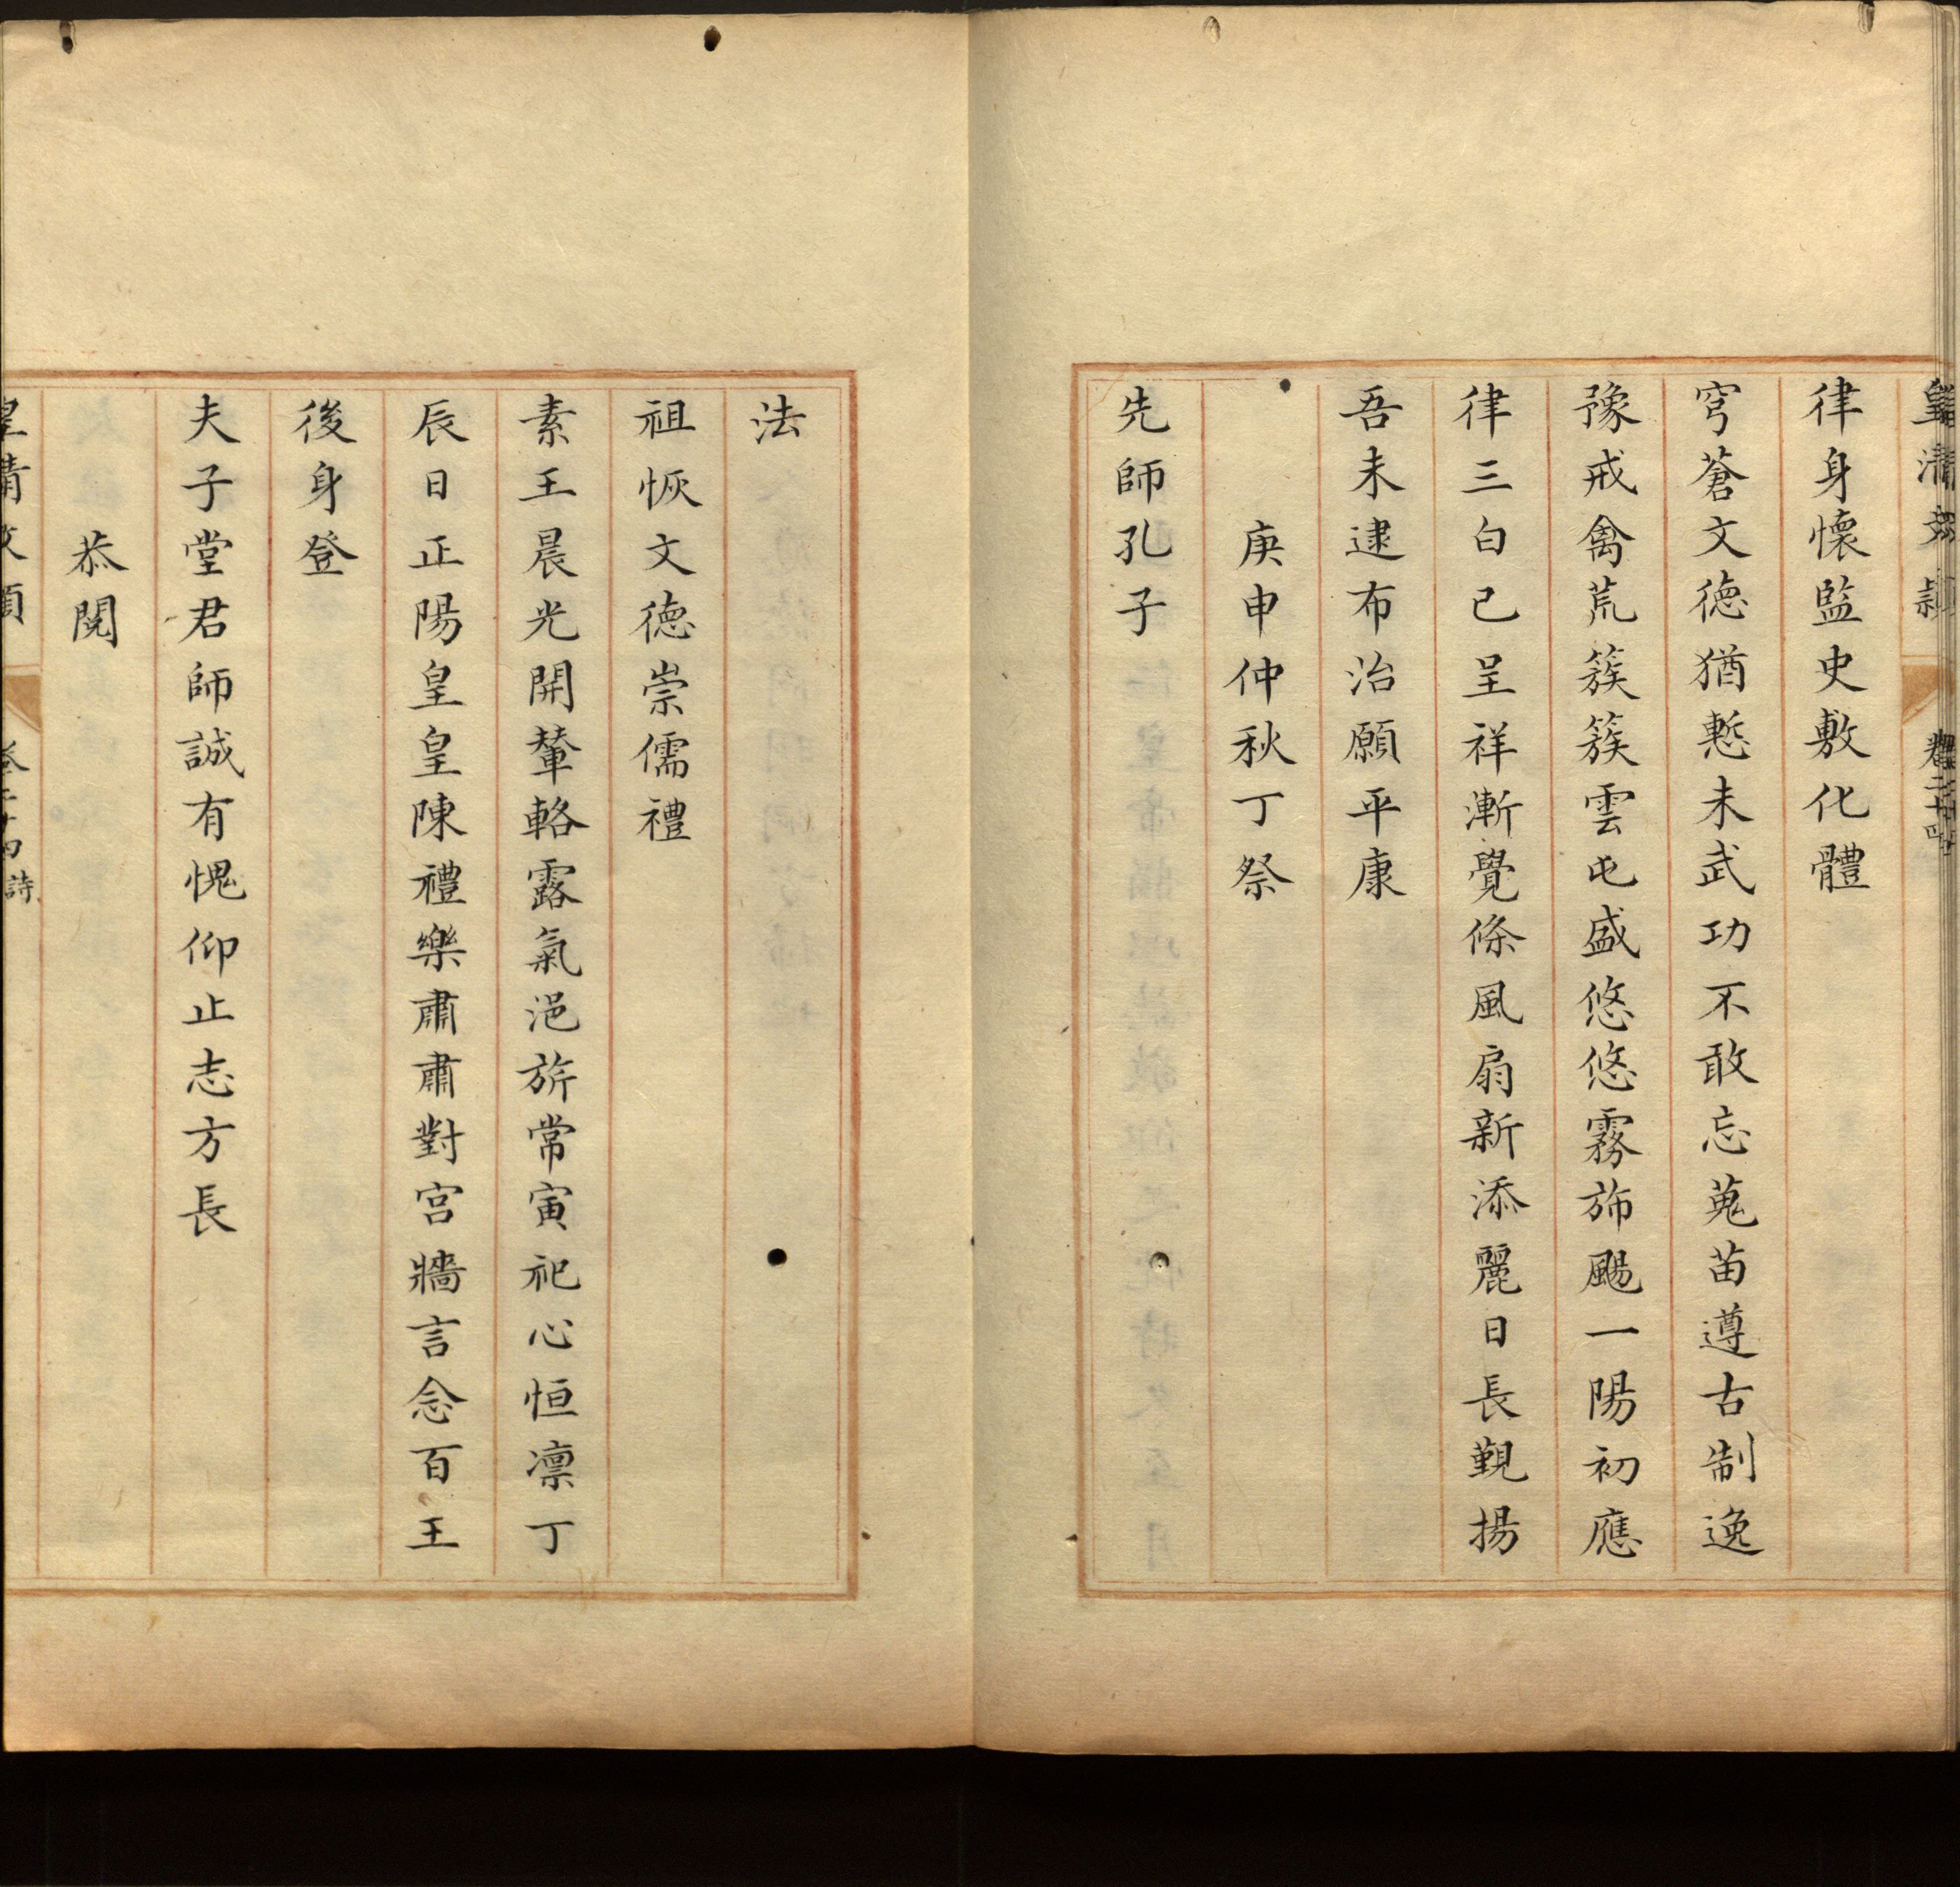 皇清文穎 卷二十四
律身懷監史敷化體
穹蒼文德猶慙未武功不敢忘蒐苗遵古制逸
豫戒禽荒簇簇雲屯盛悠悠霧斾颺一陽初應
律三白已呈祥漸覺條風扇新添麗日長覲揚
吾未逮布治願平康
庚申仲秋丁祭
先師孔子
法
祖恢文德崇儒禮
素王晨光開輦輅露氣浥旂常寅祀心恒凛丁
辰日正陽皇皇陳禮樂肅肅對宮牆言念百王
後身登
夫子堂君師誠有愧仰止志方長
恭閱
皇清文穎 卷二十四詩